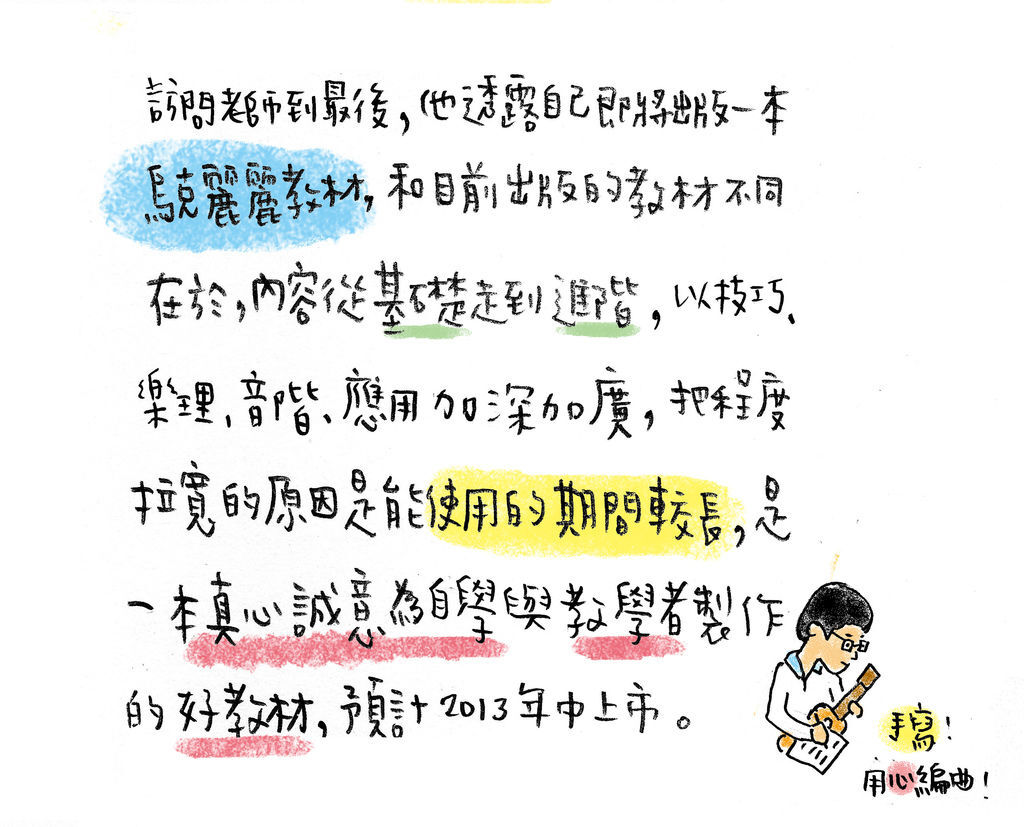 訪問老師到最後，他透露自己即將出版一本
烏克麗麗教材，和目前出版的教材不同
在於，內容從基礎走到進階，以技巧、
樂理、音階、應用加深加廣，把程度
拉寬的原因是能使用的期間較長，是
一本真心誠意為自學與教學者製作
的好教材，預計2013年中上市。
手寫！
用心編曲！